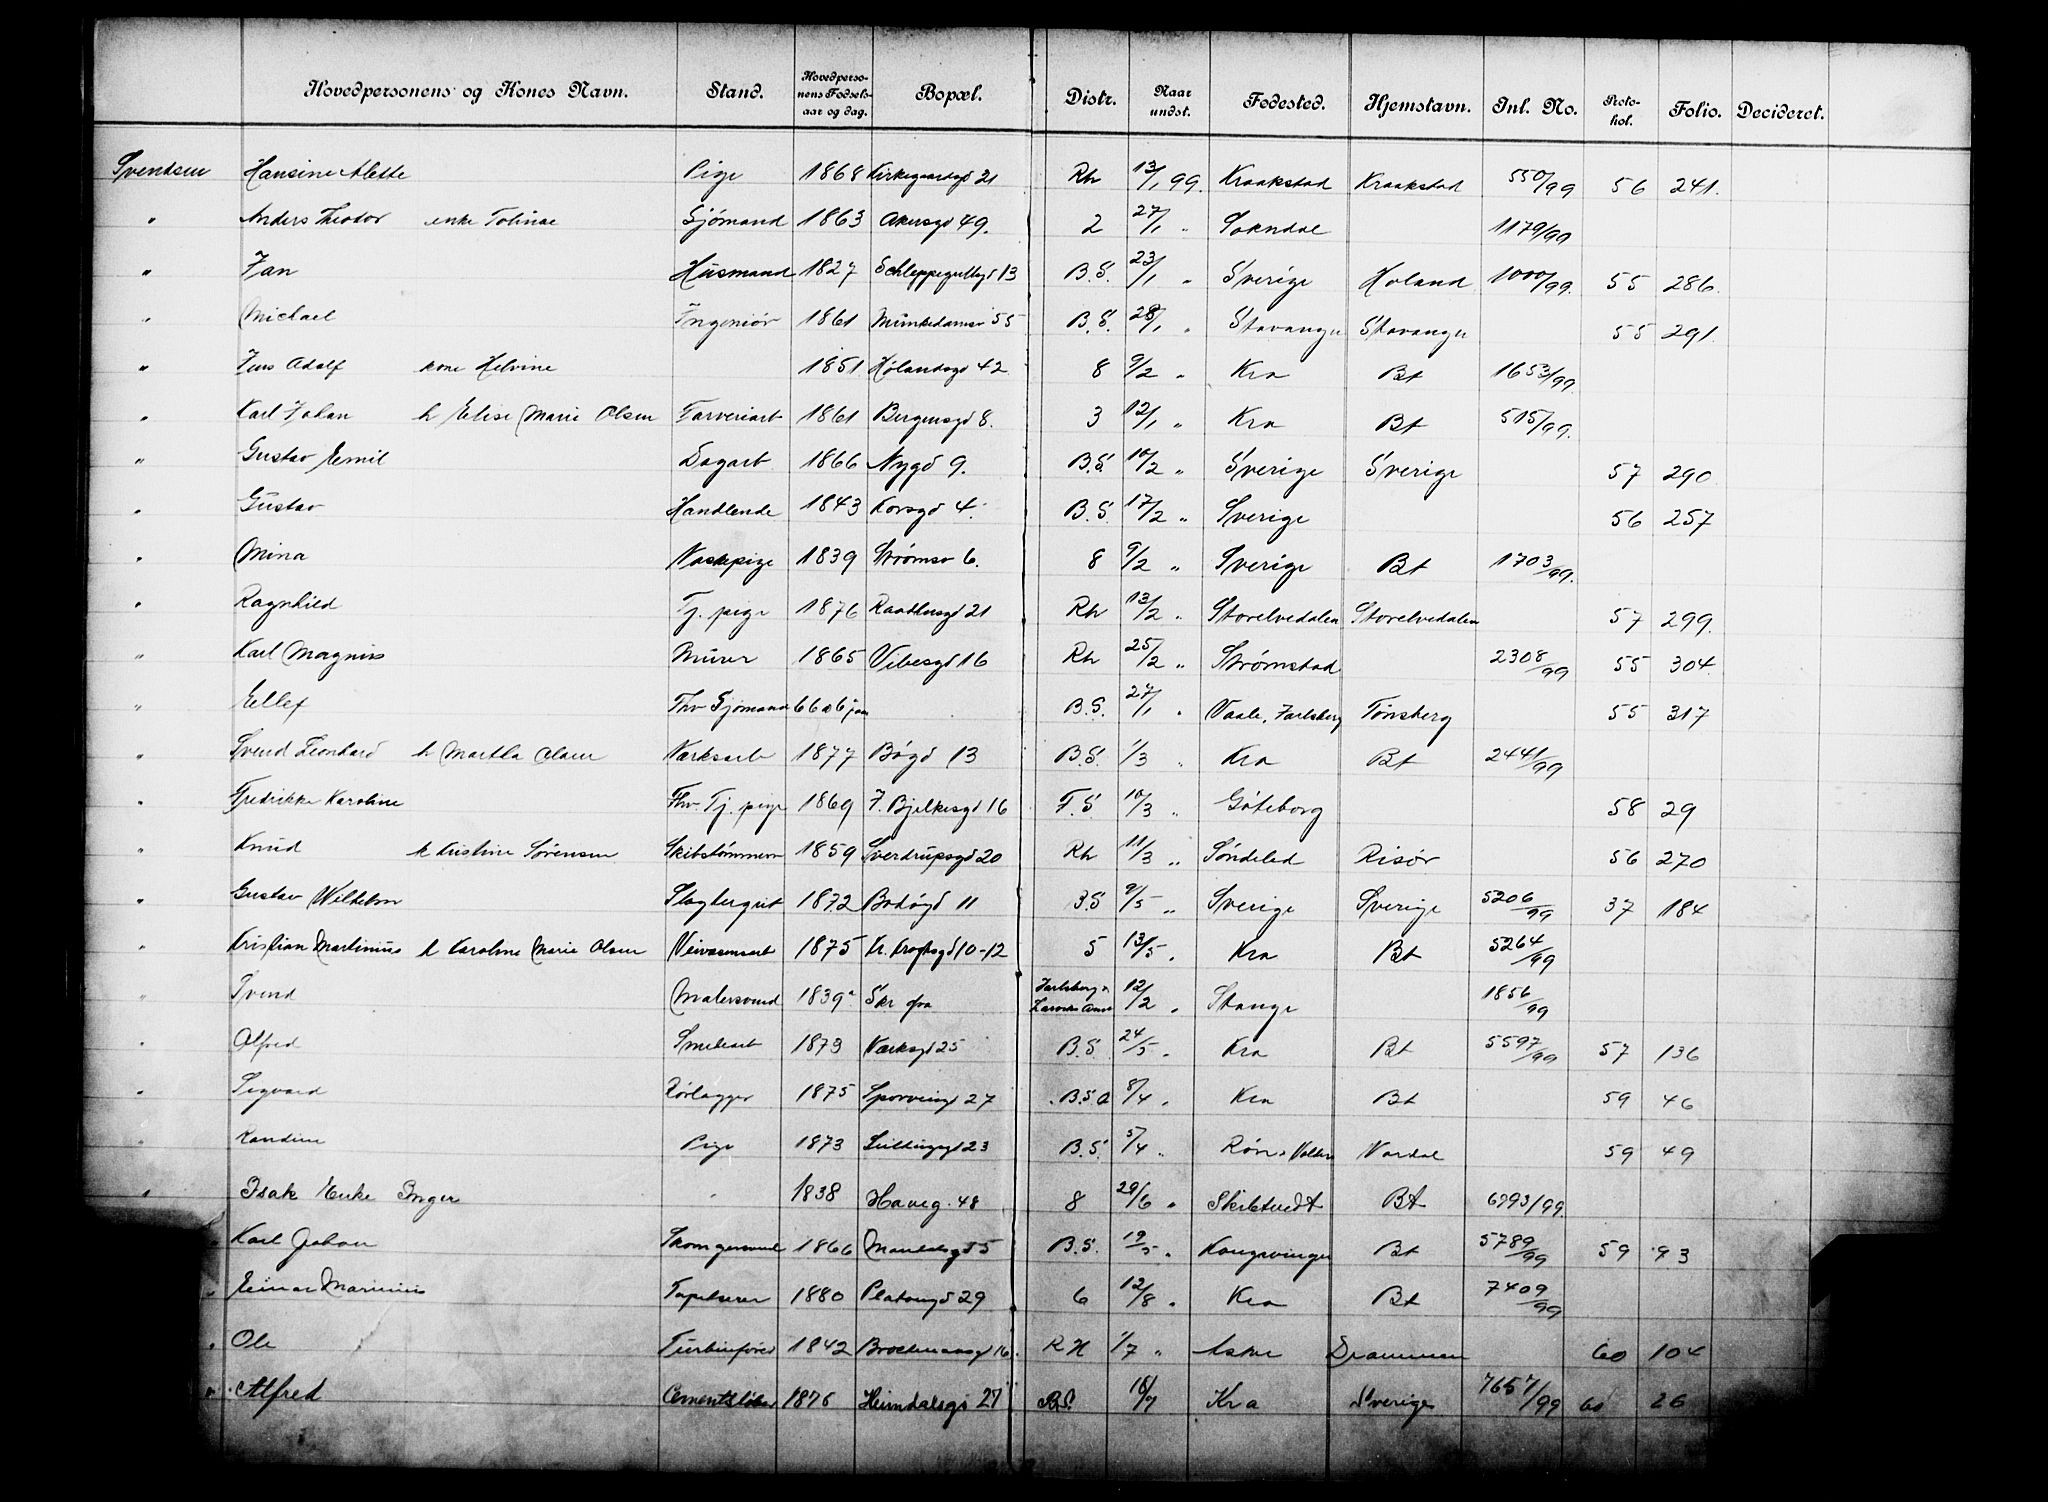 Hovedpersonens og Kones Navn. Stand. Hovedpersonens Fødselsaar og dag. Bopæl. Distr. Naar undst. Fødested. Hjemstavn. Inl. No. Protokol. Folio. Decideret.
Svendsen Hansine Alette Pige 1868 Kirkegaardsgd 21 Rh 13/1 99 Kraakstad Kraakstad 550/99 56 241.
" Anders Theodor enke Toline Sjömand 1863 Akersgd 49. 2 27/1 " Sokndal 1179/99
" Jan Husmand 1827 Schleppegrellsgd 13 B.S. 23/1 " Sverige Høland 1000/99. 55 286.
" Michael Ingeniør 1861 Munkedamsv 55 B.S. 28/1 " Stavanger Stavanger 55 291.
" Jens Adolf kone Helvine 1851 Hølandsgd 42 8 9/2 " Kra Bt 1653/99.
" Karl Johan h Elise Marie Olsen Farveriarb 1861 Bergensgd 8. 3 12/1 " Kra Bt 515/99.
" Gustav Emil Dagarb 1866 Nygd 9. B.S. 10/2 " Sverige Sverige 57 290
" Gustav Handlende 1843 Korsgd 4. B.S. 17/2 " Sverige 56 257
" Mina Vaskepige 1839 Strømsv 6. 8 9/2 " Sverige Bt 1703/99.
" Ragnhild Tj. pige 1876 Raadhusgd 21 Rh 13/2 " Storelvedalen Storelvedalen 57 299.
" Karl Magnus Murer 1865 Vibesgd 16 Rh 25/2 " Strømstad 2308/99 55 304.
" Ellef Fhv Sjömand 66 6 jan B.S. 27/1 " Vaale, Jarlsberg Tönsberg 55 317
" Svend Leonhard h Martha Olsen Værksarb 1877 Bögd 13 B.S. 1/3 " Kra Bt 2441/99
" Fredrikke Karoline Fhv. Tj. pige 1869 J. Bjelkesgd 16 F.S 10/3 " Göteborg 58 29
" Knud h Kristine Sörensen Skibstømmerm 1859 Sverdrupsgd 20 Rh 11/3 " Söndeled Risör 56 270
" Gustav Wilhelm Slagtergut 1872 Bodögd 11 B.S 9/5 " Sverige Sverige 5206/99 37 184
" Kristian Martinius h Karoline Marie Olsen Veivæsensarb 1875 Kr. Kroghsgd 10-12 5 13/5 " Kra Bt 5264/99
" Svend Malersvend 1839 Skr fra Jarlsberg & Larviks Amt 12/2 " Stange 1856/99
" Alfred Smedearb 1879 Værksgd 25 B.S. 24/5 " Kra Bt 5597/99 57 136
" Sigvard Rörlægger 1875 Sporveisgd 27 B.S.A 8/4 " Kra Bt 59 46
" Randine Pige 1873 23 B.S. 5/4 " Vardal 59 49
" Isak Enke Inger " 1838 Haveg. 48 8 29/6 " Skibtvedt Bt 6793/99.
" Karl Johan Skomagersvend 1866 Mandalsgd 5 B.S. 19/5 " Kongsvinger Bt 5789/99 59 93
" Einar Marinius Tapetserer 1880 Platousgd 29 6 12/8 " Kra Bt 7409/99
" Ole Turbinfører 1842 Brochmannsgd 16 RH 1/7 " Asker Drammen 60 104
" Alfred Cementstøber 1876 Heimdalsgd 27 B.S. 18/7 Kra Sverige 7657/99 60 26